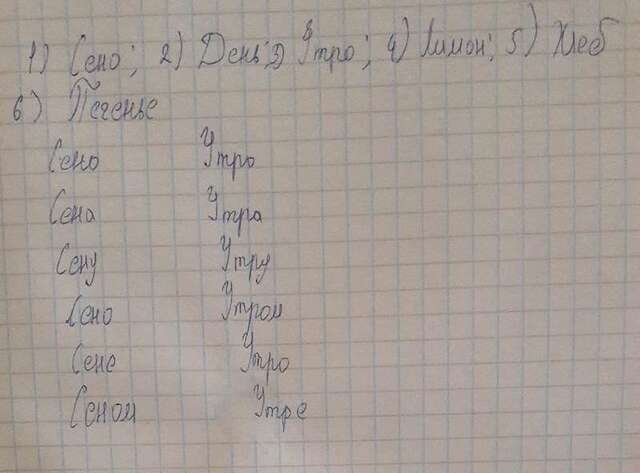 1) Сено; 2) День; 3) Утро; 4) Лимон; 5) Хлеб
6) Печенье
Сено Утро
Сена Утра
Сену Утру
Сено Утром
Сене Утро
Сеном Утре